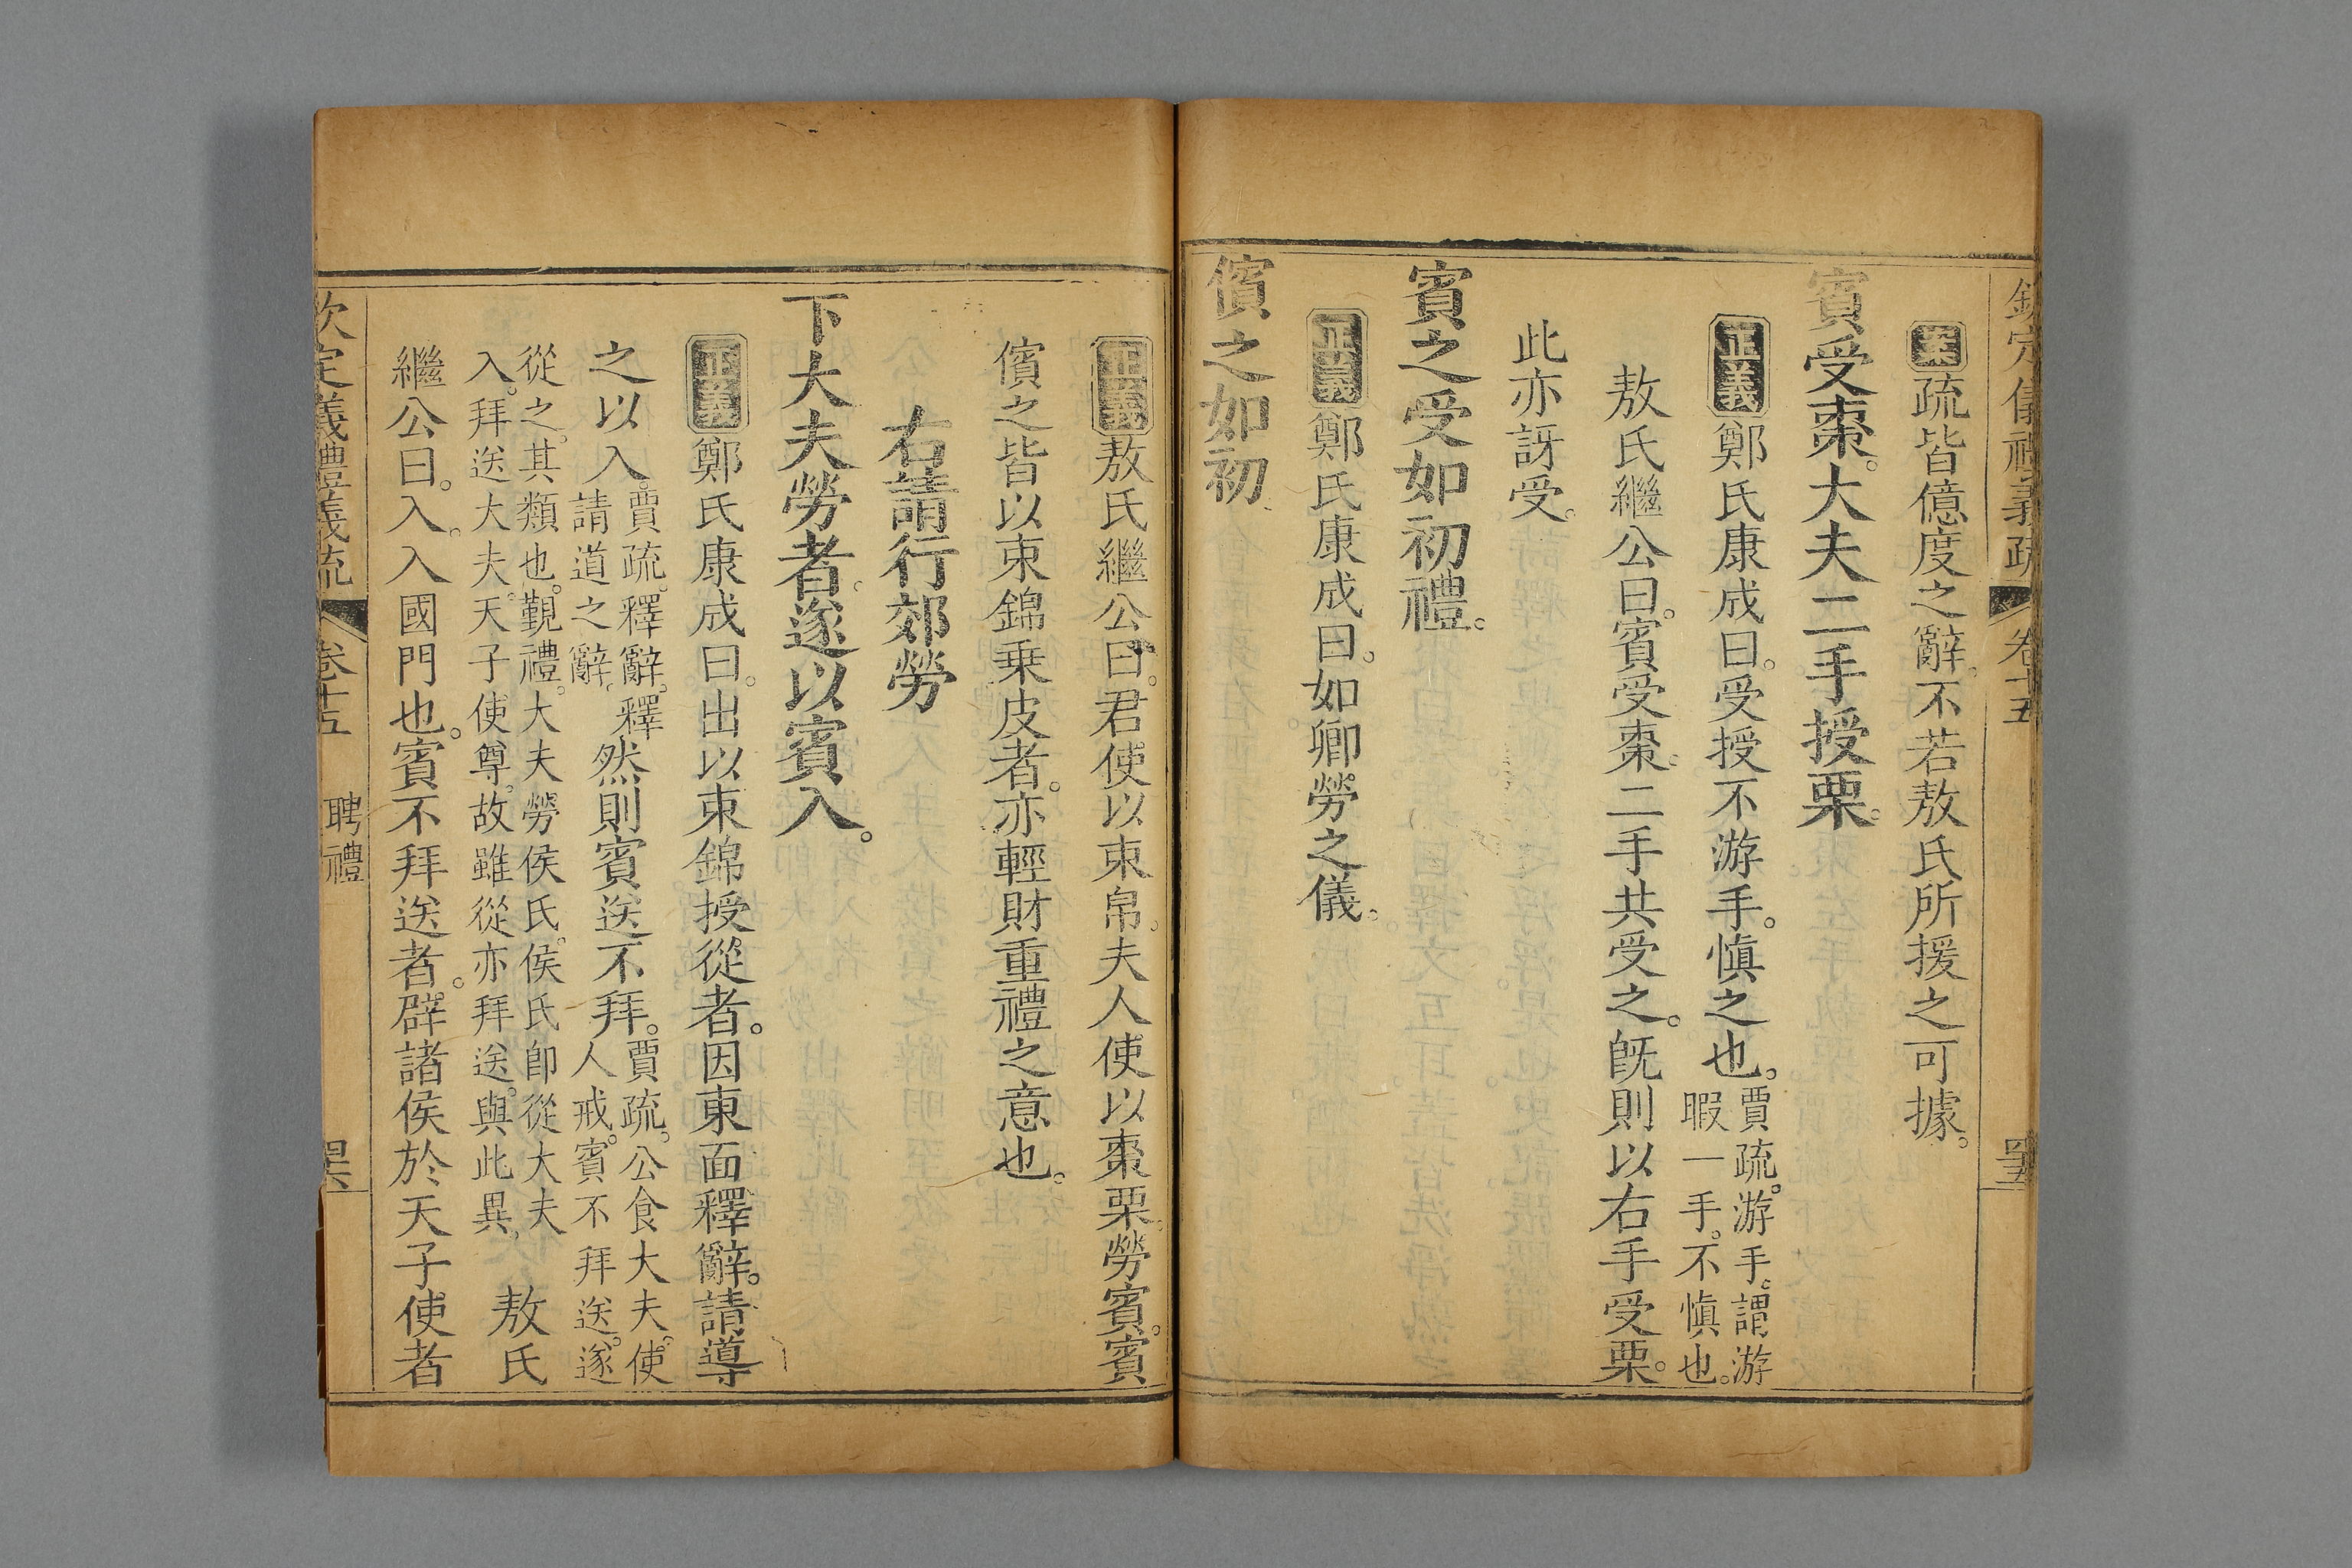 欽定儀禮義疏 卷十五 四五
案疏皆億度之辭。不若敖氏所援之可據。
賓受棗。大夫二手授栗。
正義鄭氏康成曰。受授不游手。慎之也。
賈疏。游手。謂游
暇一手。不慎也。
敖氏繼公曰。賓受棗。二手共受之。旣則以右手受栗。
此亦訝受。
賓之受如初禮。
正義鄭氏康成曰。如卿勞之儀。
儐之如初
正義敖氏繼公曰。君使以束帛。夫人使以棗栗。勞賓。賓
儐之皆以束錦乗皮者。亦輕財重禮之意也。
右請行郊勞
下大夫勞者遂以賓入。
正義鄭氏康成曰。出以束錦授從者。因東面釋辭。請導
之以入。
賈疏。釋辭。釋
請道之辭。
然則賓送不拜。
賈疏。公食大夫。使
人戒。賓不拜送。遂
從之。其類也。覲禮。大夫勞侯氏。侯氏卽從大夫
入。拜送大夫。天子使尊。故雖從亦拜送。與此異。
敖氏
繼公曰。入。入國門也。賓不拜送者。辟諸侯於天子使者
欽定儀禮義疏 卷十五 聘禮 四六